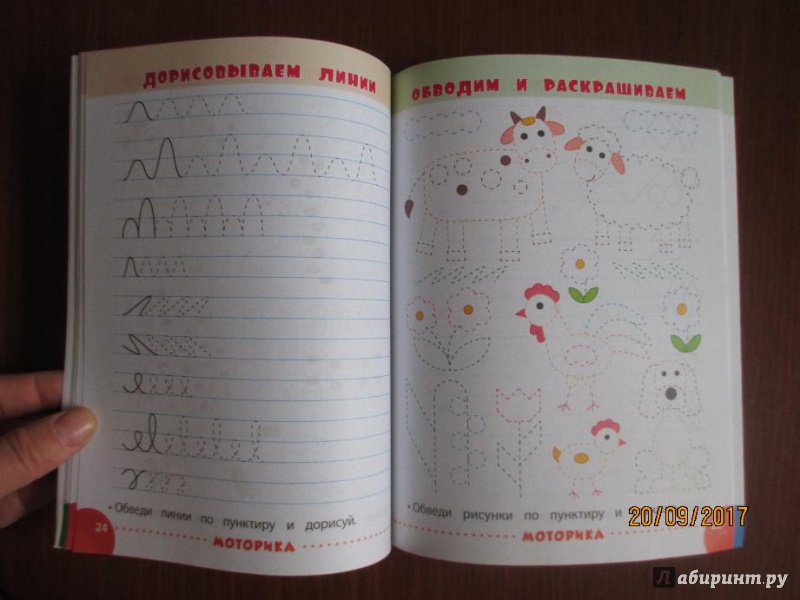 ДОРИСОВЫВАЕМ ЛИНИИ
• Обведи линии по пунктиру и дорисуй.
24
МОТОРИКА
ОБВОДИМ И РАСКРАШИВАЕМ
• Обведи рисунки по пунктиру и
20/09/2017
МОТОРИКА
Лабиринт.ру